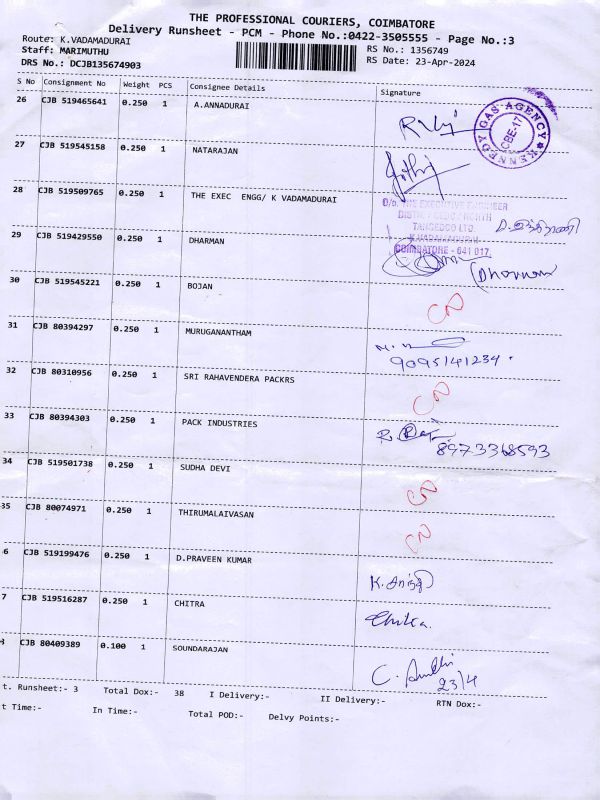 THE PROFESSIONAL COURIERS, COIMBATORE
Delivery Runsheet - PCM - Phone No.:0422-3505555 - Page No.:3
Route: K.VADAMADURAI
Staff: MARIMUTHU
DRS No.: DCJB135674903
RS No.: 1356749
RS Date: 23-Apr-2024
S No Consignment No Weight PCS Consignee Details Signature
26 CJB 519465641 0.250 1 A.ANNADURAI
KENNEDY GAS AGENCY
CBE-17
27 CJB 519545158 0.250 1 NATARAJAN
28 CJB 519509765 0.250 1 THE EXEC ENGG/ K VADAMADURAI
D/o. THE EXECUTIVE ENGINEER
TANGEDCO LTD.
COIMBATORE - 641 017.
29 CJB 519429550 0.250 1 DHARMAN
30 CJB 519545221 0.250 1 BOJAN
31 CJB 80394297 0.250 1 MURUGANANTHAM
9095141234.
32 CJB 80310956 0.250 1 SRI RAHAVENDERA PACKRS
33 CJB 80394303 0.250 1 PACK INDUSTRIES
8973368593
34 CJB 519501738 0.250 1 SUDHA DEVI
35 CJB 80074971 0.250 1 THIRUMALAIVASAN
6 CJB 519199476 0.250 1 D.PRAVEEN KUMAR
K. சாந்தி
7 CJB 519516287 0.250 1 CHITRA
Chitra.
CJB 80409389 0.100 1 SOUNDARAJAN
23/4
t. Runsheet:- 3 Total Dox:- 38 I Delivery:- II Delivery:- RTN Dox:-
t Time:- In Time:- Total POD:- Delvy Points:-